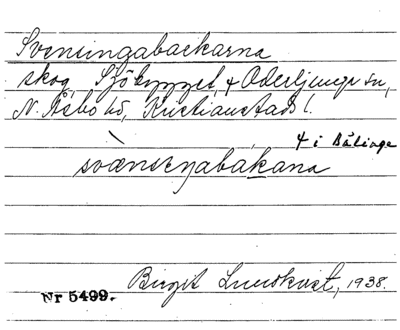 Svenningabackarna
skog, Sjökygget, & Oderljunga sn,
N. Åsbo hd, Kristianstads l.
& i Bälinge
svænseŋabákana
Birgit Lundkvist, 1938.
Nr 5499.